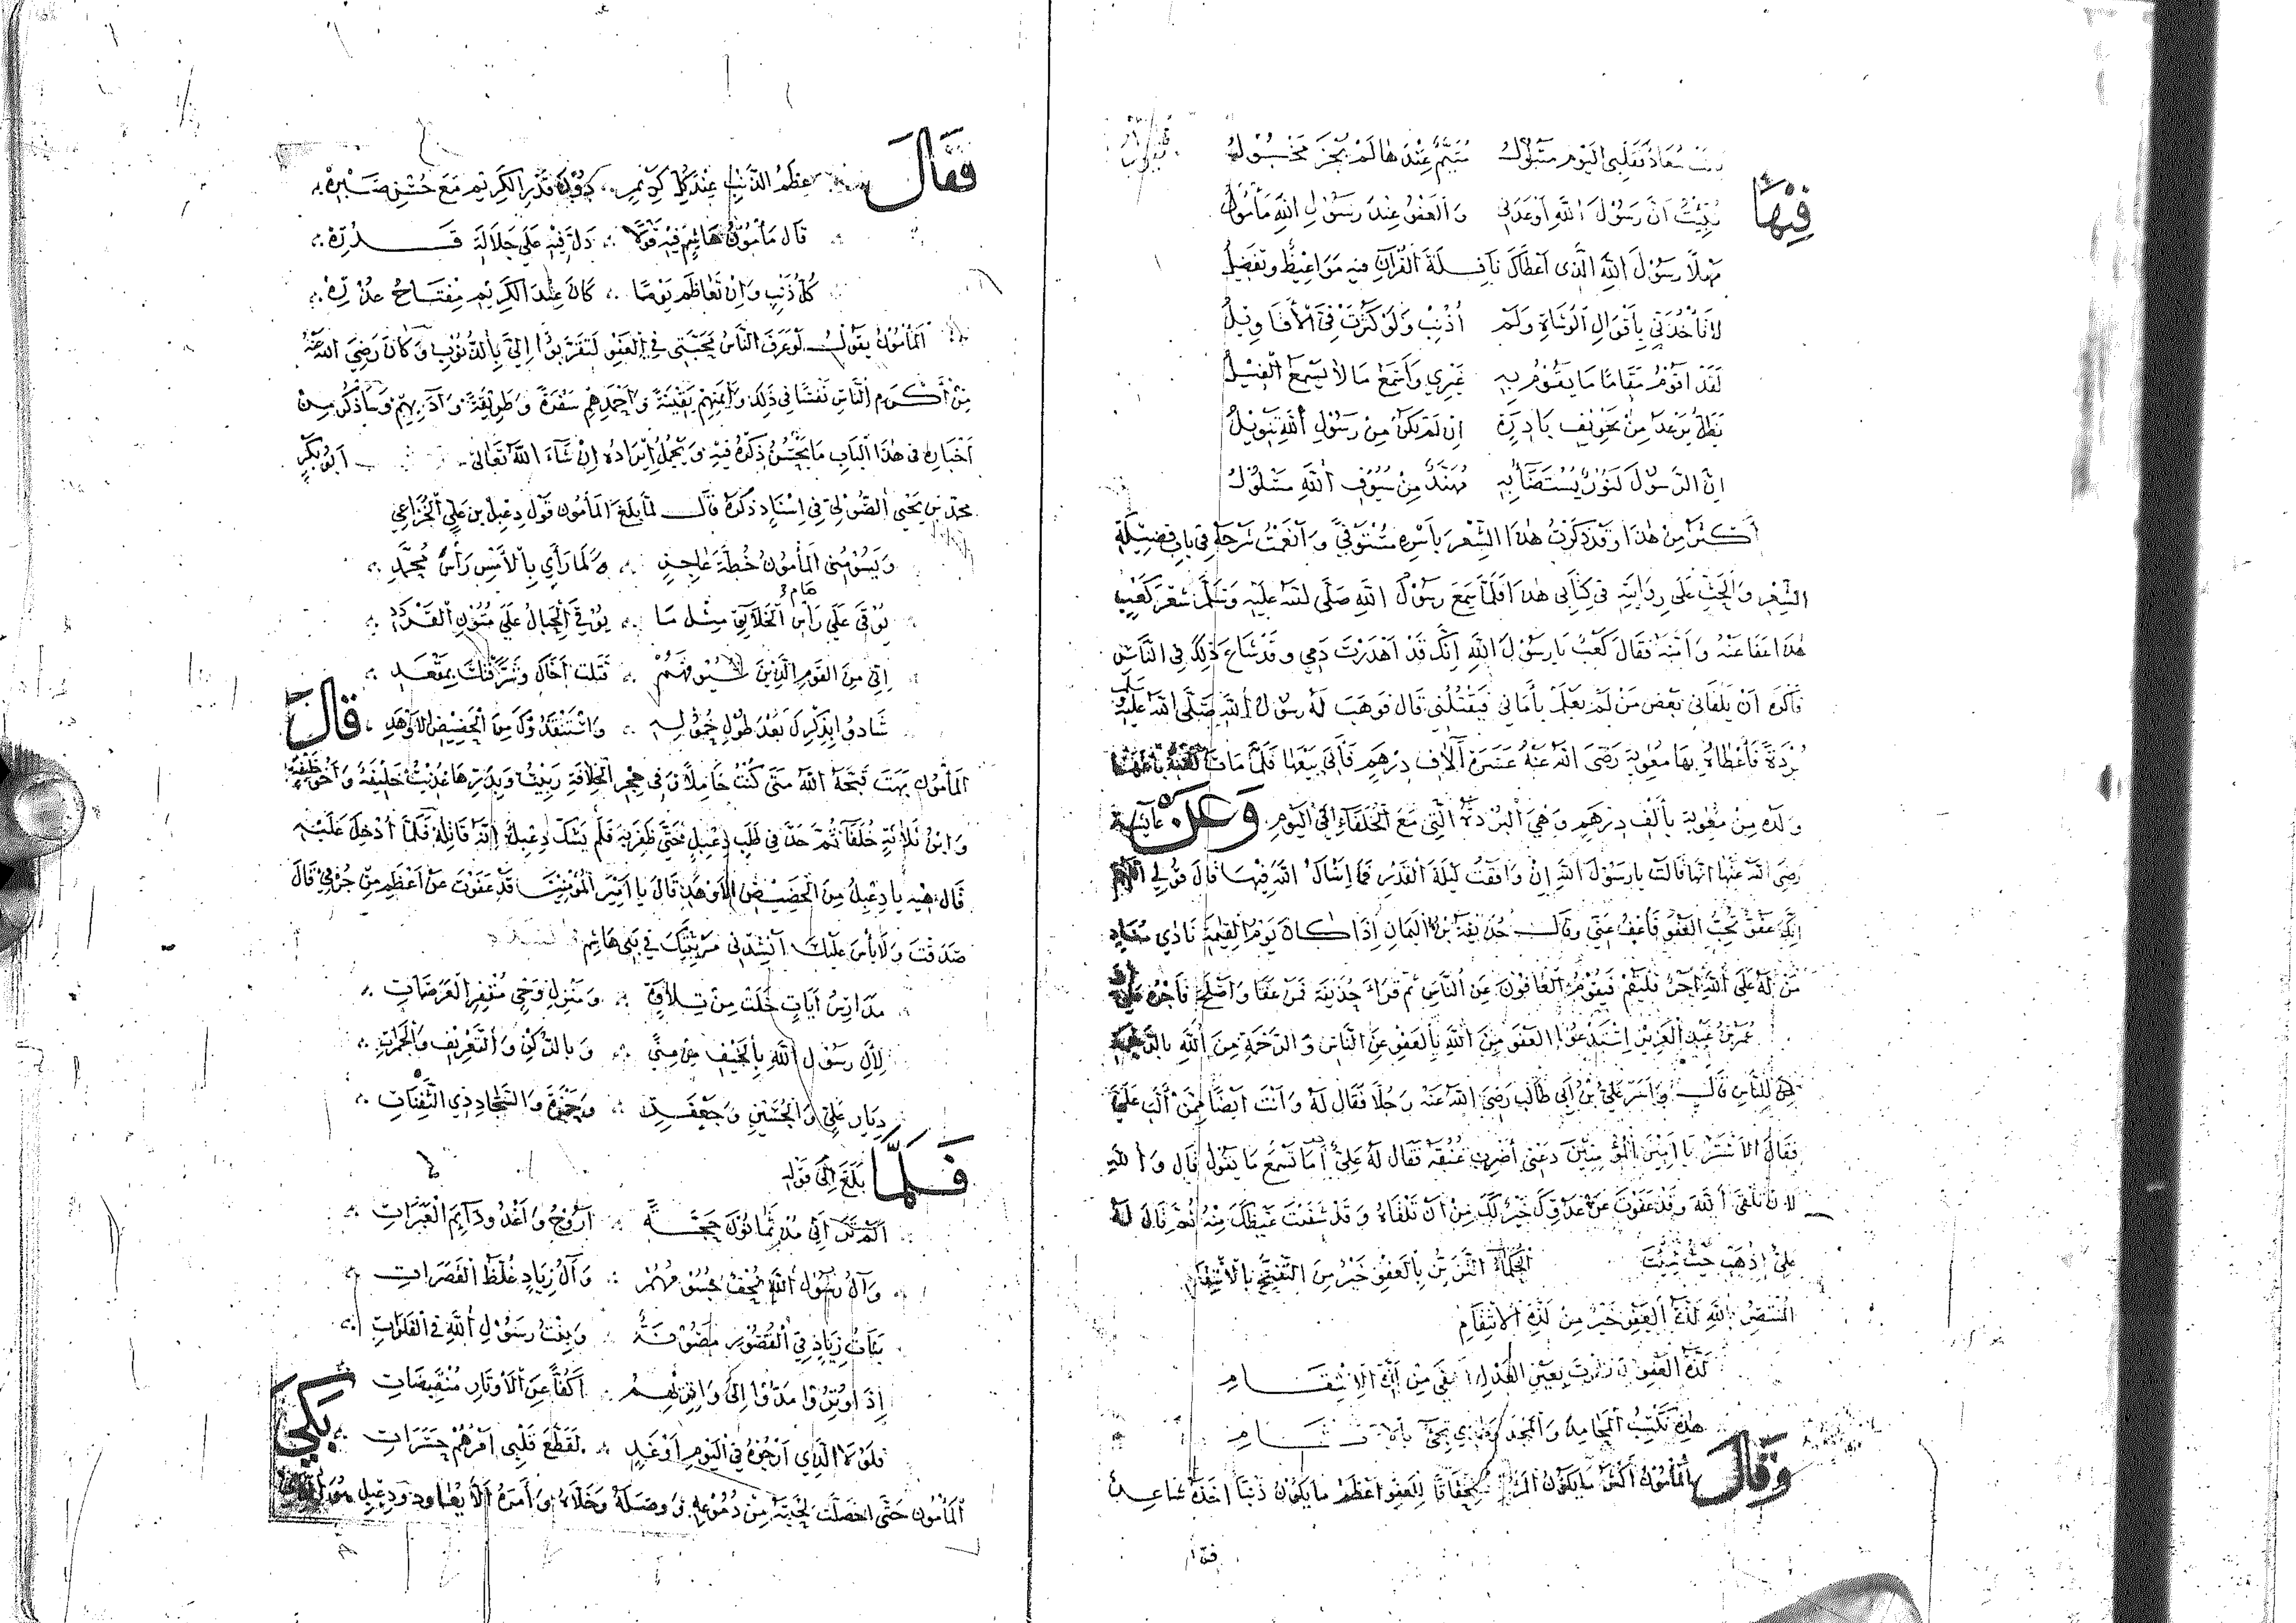 بانت سعاد فقلبي اليوم متبول متيم عندها لم يجز مكبول
فيها
نبئت ان رسول الله اوعدني والعفو عند رسول الله مأمول
مهلا رسول الله الذي اعطاك نافلة القرآن فيه مواعيظ وتفضيل
لا تأخذني بأقوال الوشاة ولم أذنب ولو كثرت في الأقاويل
لقد اقوم مقاما ما يقوم به غيري وأسمع ما لا يسمع الفيل
يظل يرعد من تخويف بادرة ان لم يكن من رسول الله تنويل
ان الرسول لنور يستضاء به مهند من سيوف الله مسلول
أكثر من هذا وقد ذكرت هذا الشعر بأسره مستوفى وأنعمت شرحه في باب فضيلة
الشعر والحث على روايته في كتابي هذا فلما سمع رسول الله صلى الله عليه وسلم شعر كعب
هذا عفا عنه وأمنه فقال كعب يا رسول الله انك قد اهدرت دمي وقد شاع ذلك في الناس
فأكره ان يلقاني بعض من لم يعلم بأماني فيقتلني قال فوهب له رسول الله صلى الله عليه وسلم
بردة فأعطاه بها معوية رضي الله عنه عشرة آلاف درهم فأبى بيعها فلما مات كعب باعها
ولده من معوية بألف درهم وهي البردة التي مع الخلفاء الى اليوم وعن عايشة
رضي الله عنها انها قالت يا رسول الله ان وافقت ليلة القدر فما اسأل الله فيها قال قولي اللهم
انك عفو تحب العفو فأعف عني وقال حذيفة بن اليمان اذا كان يوم القيمة نادى مناد
من له على الله أجر فليقم فيقوم العافون عن الناس ثم قرأ حذيفة فمن عفا وأصلح فأجره على الله
عمر بن عبد العزيز استدعوا العفو من الله بالعفو عن الناس والرحمة من الله بالرحمة
للناس قال وأسر علي بن أبي طالب رضي الله عنه رجلا فقال له وأنت ايضا ممن ألب علي
فقال الاشتر يا أمير المؤمنين دعني أضرب عنقه فقال له علي أما تسمع ما يقول قال والله
لان تلقى الله وقد عفوت عن عدوك خير لك من أن تلقاه وقد شفيت غيظك منه نعم قال له
علي اذهب حيث شئت الحكماء التزين بالعفو خير من التقبح بالأنتقام
المنتصر بالله لذة العفو خير من لذة الأنتقام
لذة العفو ان نظرت بعين العدل أشفى من لذة الانتقام
هذه تكسب المحامد والمجد وهذي تجئ بالأثام
وقال المأمون أكثر ما يكون المرء استحقاقا للعفو اعظم ما يكون ذنبا اخذه شاعر
فقال
فقال عظم الذنب عند كل كريم دون قدر الكريم مع حسن صبره
قال مأمون هاشم فيه قولا دل فيه على جلالة قدره
كل ذنب وان تعاظم يوما كان عند الكريم مفتاح عذره
المأمون يقول لو عرف الناس محبتي في العفو لتقربوا الي بالذنوب وكان رضي الله عنه
من أكرم الناس نفسا في ذلك وأيمنهم نقيبة وأحمدهم سفرة وطريقة وأدبهم وسأذكر من
أخباره في هذا الباب ما يحسن ذكره فيه ويجمل ايراده ان شاء الله تعالى ابو بكر
محمد بن يحيى الصولي في اسناد ذكره قال لما بلغ المأمون قول دعبل بن علي الخزاعي
ويسومني المأمون خطة عاجز ولما رأى بالأمس رأس محمد
هام
يوفي على رأس الخلايق مثل ما يوفي الجبال على متون القردد
اني من القوم الذين سيوفهم قتلت اخاك وشرفتك بمقعد
شادوا بذكرك بعد طول خموله واستنقذوك من الحضيض الاوهد قال
المأمون بهت قبحه الله متى كنت خاملا وفي حجر الخلافة ربيت وبدرها غذيت خليفة وأخو خليفة
وابن ثلاثة خلفاء ثم جد في طلب دعبل حتى ظفر به فلم يشك دعبل انه قاتله فلما أدخل عليه
قال هيه يا دعبل من الحضيض الأوهد قال يا أمير المؤمنين قد عفوت عن أعظم من جرمي قال
صدقت ولا بأس عليك انشدني مرثيتك في بني هاشم
مدارس آيات خلت من تلاوة ومنزل وحي مقفر العرصات
لآل رسول الله بالخيف من منى وبالركن والتعريف والجمرات
ديار علي والحسين وجعفر وحمزة والسجاد ذي الثفنات
فلما بلغ الى قوله
ألم تر أني مذ ثمانون حجة أروح وأغدو دايم العبرات
وآل رسول الله نحف جسومهم وآل زياد غلظ القصرات
بنات زياد في القصور مصونة وبنت رسول الله في الفلوات
إذا وتروا مدوا الى واتريهم أكفا عن الأوتار منقبضات
فلولا الذي أرجوه في اليوم أو غد لقطع قلبي اثرهم حسرات بكى
المأمون حتى اخضلت لحيته من دموعه ووصله وخلاه وأمره ألا يعاود ودعبل